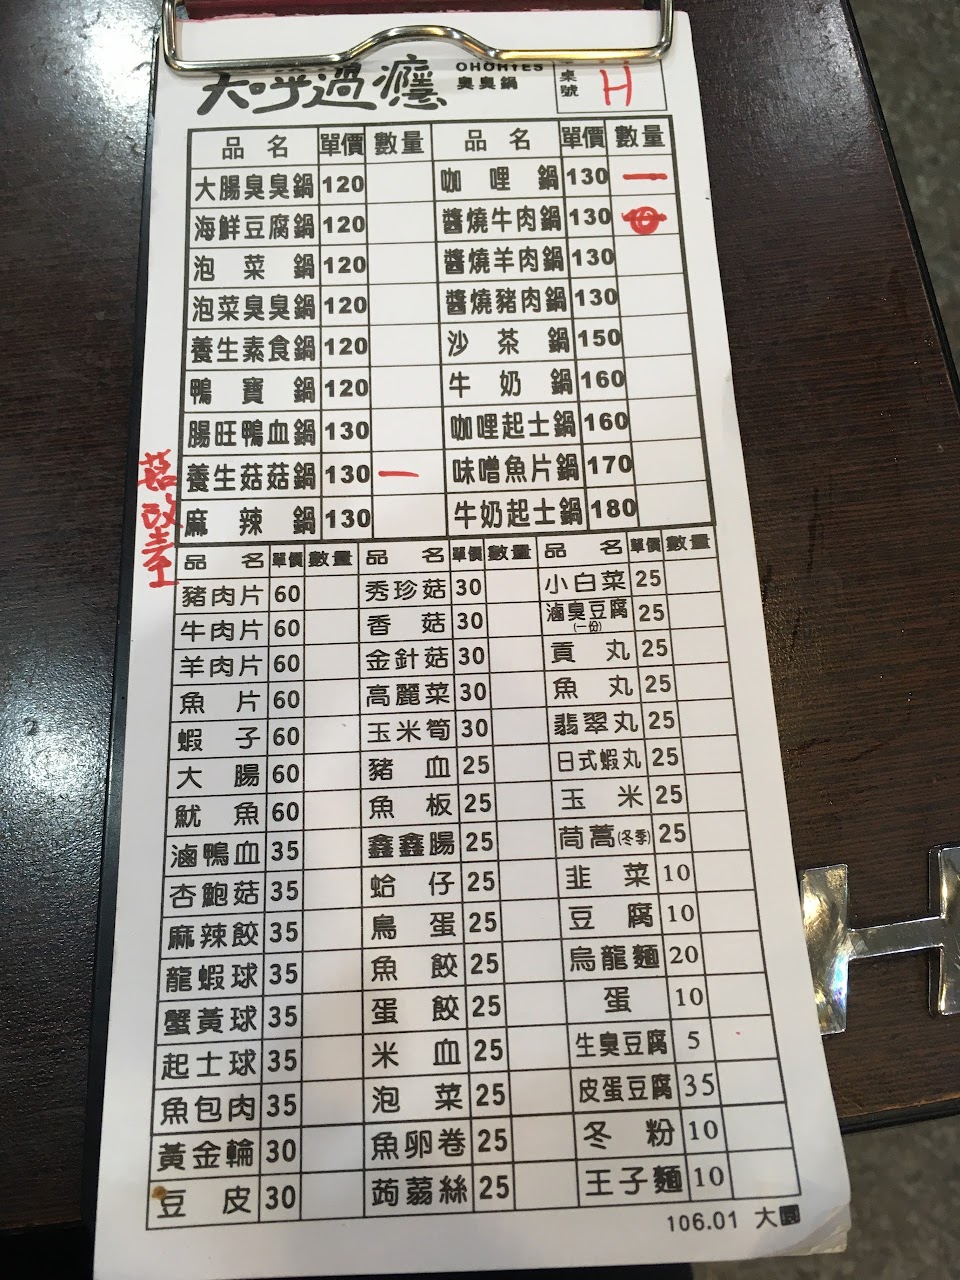 大呼過癮 OHOHYES 臭臭鍋 桌號 H
品名 單價 數量 品名 單價 數量
大腸臭臭鍋 120 咖哩鍋 130 一
海鮮豆腐鍋 120 醬燒牛肉鍋 130
泡菜鍋 120 醬燒羊肉鍋 130
泡菜臭臭鍋 120 醬燒豬肉鍋 130
養生素食鍋 120 沙茶鍋 150
鴨寶鍋 120 牛奶鍋 160
腸旺鴨血鍋 130 咖哩起士鍋 160
養生菇菇鍋 130 一 味噌魚片鍋 170
麻辣鍋 130 牛奶起士鍋 180
菇改素
品名 單價 數量 品名 單價 數量 品名 單價 數量
豬肉片 60 秀珍菇 30 小白菜 25
牛肉片 60 香菇 30 滷臭豆腐(一份) 25
羊肉片 60 金針菇 30 貢丸 25
魚片 60 高麗菜 30 魚丸 25
蝦子 60 玉米筍 30 翡翠丸 25
大腸 60 豬血 25 日式蝦丸 25
魷魚 60 魚板 25 玉米 25
滷鴨血 35 鑫鑫腸 25 茼蒿(冬季) 25
杏鮑菇 35 蛤仔 25 韭菜 10
麻辣餃 35 鳥蛋 25 豆腐 10
龍蝦球 35 魚餃 25 烏龍麵 20
蟹黃球 35 蛋餃 25 蛋 10
起士球 35 米血 25 生臭豆腐 5
魚包肉 35 泡菜 25 皮蛋豆腐 35
黃金輪 30 魚卵卷 25 冬粉 10
豆皮 30 蒟蒻絲 25 王子麵 10
106.01 大園